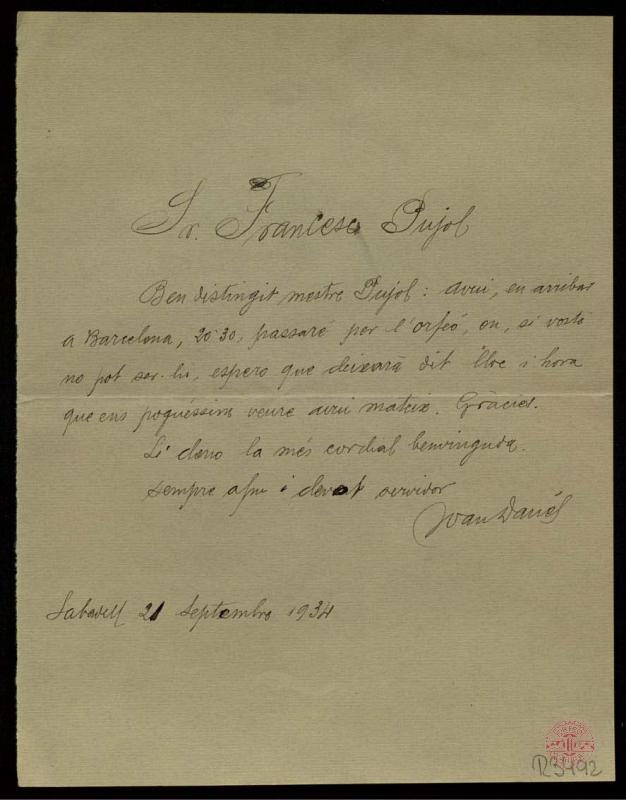 Sr. Francesc Pujol
Ben distingit mestre Pujol: avui, en arribar
a Barcelona, 20'30, passaré per l'orfeó, on, si vostè
no pot ser-hi, espero que deixarà dit lloc i hora
que ens poguéssim veure avui mateix. Gràcies.
Li dono la més cordial benvinguda.
Sempre afm i devot servidor
Joan Danés
Sabadell 21 Septembre 1934
R3492